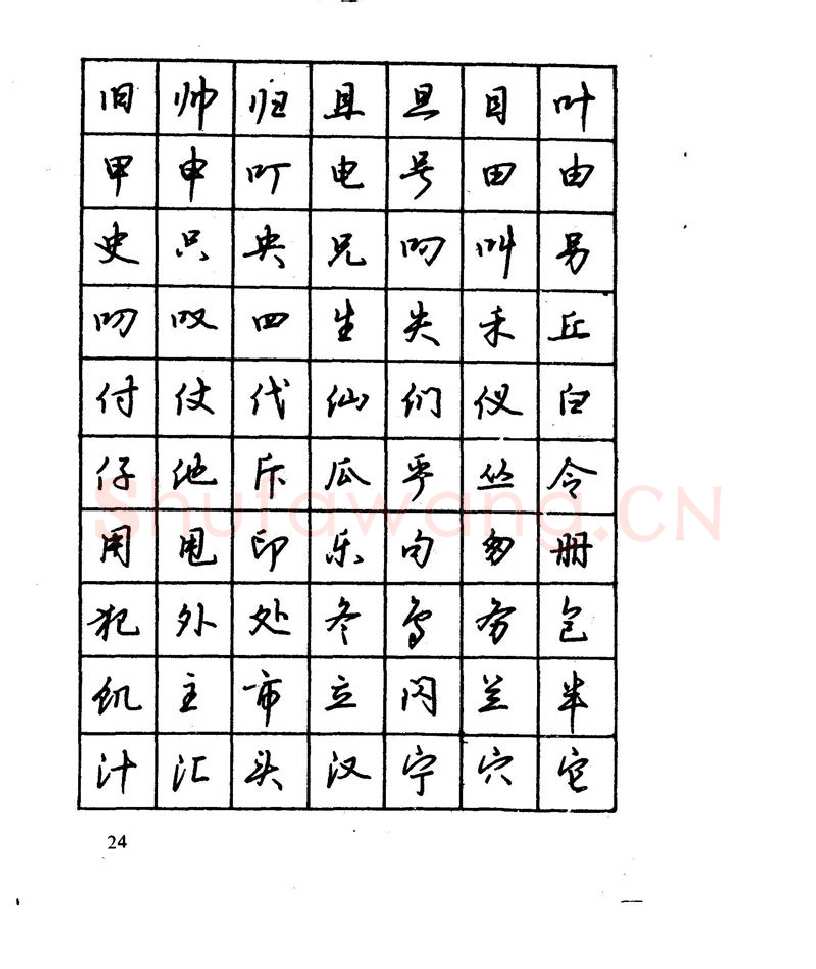 旧 帅 归 且 旦 目 叶
甲 申 叮 电 号 田 由
史 只 央 兄 叼 叫 另
叨 叹 四 生 失 禾 丘
付 仗 代 仙 们 仪 白
仔 他 斥 瓜 乎 丛 令
Shufawang.CN
用 甩 印 乐 句 匆 册
犯 外 处 冬 鸟 务 包
饥 主 市 立 闪 兰 半
汁 汇 头 汉 宁 穴 它
24